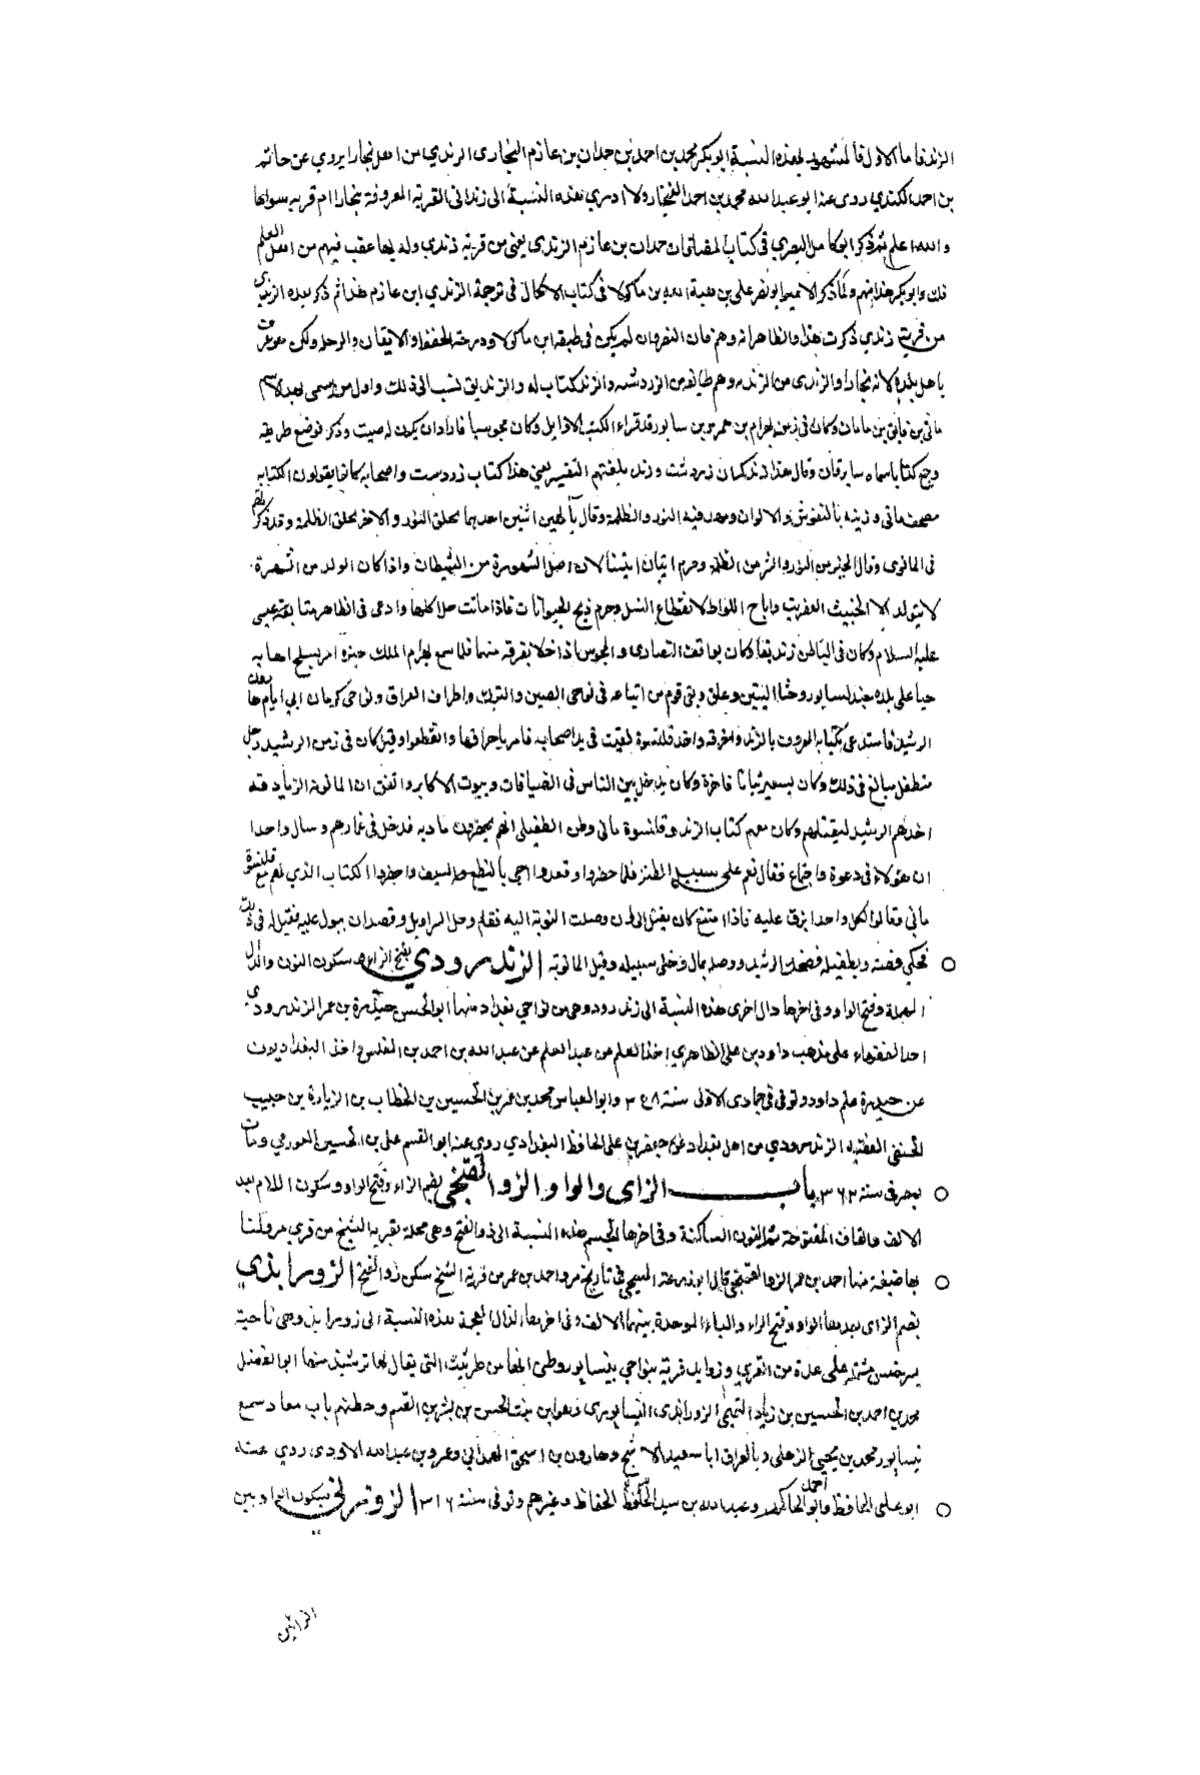 الزندفاما الاول فالمشهور بهذه النسبة ابو بكر محمد بن احمد بن حمدان بن عازم البخارى الزندي من اهل بخارا يروي عن حاتم
بن احمد الكندي روى عنه ابو عبد الله محمد بن احمد الغنجار ولا ادري هذه النسبة الى زندانى القرية المعروفة ببخارا ام قرية سواها
والله اعلم ثم ذكر ابو كامل البصري فى كتاب المضافات حمدان بن عازم الزندى يعنى من قرية زندى وله بها عقب فيهم من اهل العلم
قلت وابو بكر هذا منهم ولما ذكر الامير ابو نصر على بن هبة الله بن ماكولا فى كتاب الاكمال فى ترجمة الزندي ابن عازم هذا ثم ذكر بعده الزندى
من قرية زندي ذكرت هذا والظاهر انه وهم فان النفر وان لم يكن فى طبقة ابن ماكولا ودرجته الحفظ والاتقان والرحلة ولكن
باهل بلده لانه بخارا والزندى من الزنده وهم طائفة من الزردشته والزند كتاب له والزنديق نسب الى ذلك واول من سمى بهذا الاسم
مانى بن فاتق بن مامان وكان فى زمن بهرام بن هرمز بن سابور قد قراء الكتب الاوايل وكان مجوسيا فاراد ان يكون له صيت وذكر فوضع طريقه
وجمع كتابا سماه سابرقان وقال هذا زند كمان زردشت وزند بلغتهم التفسير يعنى هذا كتاب زردست واصحابه كانوا يقولون الكتابه
مصحف مانى وزينه بالنقوش والالوان ومهد فيه النور والظلمة وقال بالهين اثنين احدهما يخلق النور والاخر يخلق الظلمة وقد ذكر
فى المانوى وقال الخير من النور والشر من الظلمة وحرم اتيان النساء لان اصل الشهوة من الشيطان واذا كان الولد من الشهوة
لا يتولد الا الخبيث العفريت واباح اللواط لانقطاع النسل وحرم ذبح الحيوانات فاذا ماتت حلا كلها وادعى فى الظاهر متابعة عيسى
عليه السلام وكان فى الباطن زنديقا وكان يوافق النصارى والمجوس اذا خلا بفرقة منهما فلما سمع بهرام الملك خبره امر بسلخ اهابه
حيا على بلده جنديسابور وحشا التبن وعلق وبقى قوم من اتباعه فى نوحى الصين والترك واطراف العراق ونواحى كرمان الى ايام هارون
الرشيد فاستدعى بكتابه المعروف بالزند واحرقه واخذ قلنسوة لبقيت فى يد اصحابه فامر باحراقها وانقطعوا وقيل كان فى زمن الرشيد رجل
متطفل مبالغ فى ذلك وكان يستعير ثيابا فاخرة وكان يدخل بين الناس فى الضيافات وبيوت الاكابر واتفق ان المانوية الزنادقه
اخذهم الرشيد ليقتلهم وكان معهم كتاب الزند وقلنسوة مانى وظن الطفيلى انهم يحضرون مادبة فدخل فى غمارهم وسال واحدا
ان هؤلاء فى دعوة واجتماع فقال نعم على سبيل الطنز فلما حضروا وقعدوا جى بالنطع والسيف واحضروا الكتاب الذي لهم مع قلنسوة
مانى وقالوا لكل واحد ابزق عليه فاذا امتنع كان يقتل الى ان وصلت النوبة اليه فقام وحل السراويل وقصد ان يبول عليه فقيل له فى ذلك
فحكى قصته وتطفيله فضحك الرشيد ووصله بمال وخلى سبيله وقتل المانوية الزندرودي بفتح الزاء وسكون النون والدال
المهملة وفتح الواو وفى اخرها دال اخرى هذه النسبة الى زندرود وهى من نواحى بغداد منها ابو الحسن حيدرة بن عمر الزندرودي
احد الفقهاء على مذهب داود بن على الظاهري اخذ العلم من عبد الله بن احمد بن المغلس واخذ البغداديون
عن حيدرة علم داود وتوفى فى جمادى الاولى سنة ٣٥٨ وابو العباس محمد بن عمر بن الحسين بن الخطاب بن الزيادة بن حبيب
الحنفى الفقيه الزندرودي من اهل بغداد عن جعفر بن على الحافظ البغدادي روى عنه ابو القسم على بن الحسين ومات
بمصر فى سنة ٣٦٢ باب الزاى والواو الزوالقنجى بضم الزاء وفتح الواو وسكون اللام بعد
الالف والقاف المفتوحة ثم النون الساكنة وفى اخرها الجيم هذه النسبة الى وهى محلة بقرية السنج من قرى مرو
بها ضيعة منها احمد بن عمر الزوالقنجى قال ابو زرعة السنجى فى تاريخ مرو احمد بن عمر من قرية السنج سكن الزورابذي
بضم الزاى بعدها الواو وفتح الراء والباء الموحدة بينهما الالف وفى اخرها الذال المعجمة هذه النسبة الى زورابذ وهى ناحية
بسرخس مشتملة على عدة من القرى وزورابذ قرية بنواحي نيسابور وظنى انها من طريثيث التى يقال لها ترشيز منها ابو الفضل
محمد بن احمد بن الحسين بن زياد التميمى الزورابذى النيسابوري وهو ابن بنت الحسن بن بشر بن القسم وخطتهم باب معاد سمع
نيسابور محمد بن يحيى الذهلى وبالعراق ابا سعيد الاشج وهارون بن اسحق الهمدانى وعمرو بن عبد الله الاودى روي عنه
ابو على الحافظ وابو احمد الحاكم وعبد الله بن سيد الحافظ الحفاظ وغيرهم وتوفى سنة ٣١٦ الزوزنى بسكون الواو بين
الزائين